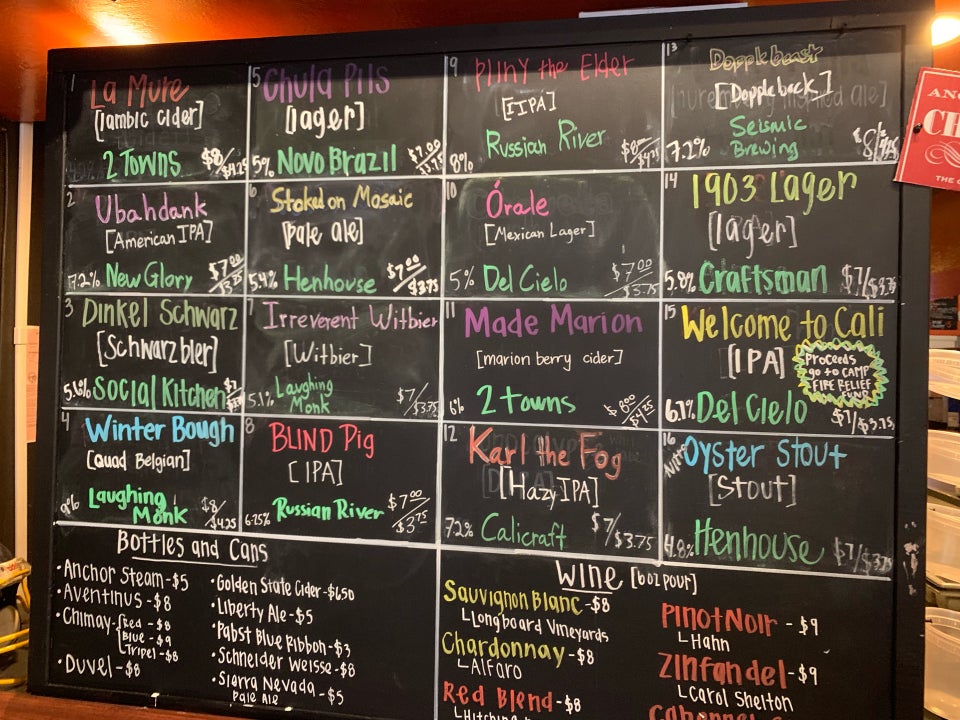 1
La Mure
[lambic cider]
2 Towns $8/$4.25
2
Ubahdank
[American IPA]
7.2% New Glory $7.00/$3.75
3
Dinkel Schwarz
[Schwarzbier]
5.6% Social Kitchen $7
4
Winter Bough
[Quad Belgian]
9% Laughing Monk $8/$4.25
5
Chula Pils
[lager]
5% Novo Brazil $7.00/$3.75
6
Stoked on Mosaic
[pale ale]
5.4% Henhouse $7.00/$3.75
7
Irreverent Witbier
[Witbier]
5.1% Laughing Monk $7/$3.75
8
BLIND Pig
[IPA]
6.25% Russian River $7.00/$3.75
9
Pliny the Elder
[IIPA]
8% Russian River $8/$4.25
10
Órale
[Mexican Lager]
5% Del Cielo $7.00/$3.75
11
Made Marion
[marion berry cider]
6% 2 towns $8.00/$4.25
12
Karl the Fog
[Hazy IPA]
7.2% Calicraft $7/$3.75
13
Dopplebeast
[Doppleback]
7.2% Seismic Brewing $8/
14
1903 Lager
[lager]
5.8% Craftsman $7/$3.75
15
Welcome to Cali
[IPA]
Proceeds
go to CAMP
FIRE RELIEF
FUND
6.7% Del Cielo $7/$3.75
16
Nitro
Oyster Stout
[Stout]
4.8% Henhouse $7/$3.75
Bottles and Cans
• Anchor Steam - $5
• Aventinus - $8
• Chimay - Red - $8
Blue - $9
Tripel - $8
• Duvel - $8
• Golden State Cider - $6.50
• Liberty Ale - $5
• Pabst Blue Ribbon - $3
• Schneider Weisse - $8
• Sierra Nevada - $5
Pale Ale
Wine [6oz pour]
Sauvignon Blanc - $8
Longboard Vineyards
Chardonnay - $8
Alfaro
Red Blend - $8
Pinot Noir - $9
Hahn
Zinfandel - $9
Carol Shelton
ANC
CH
THE C